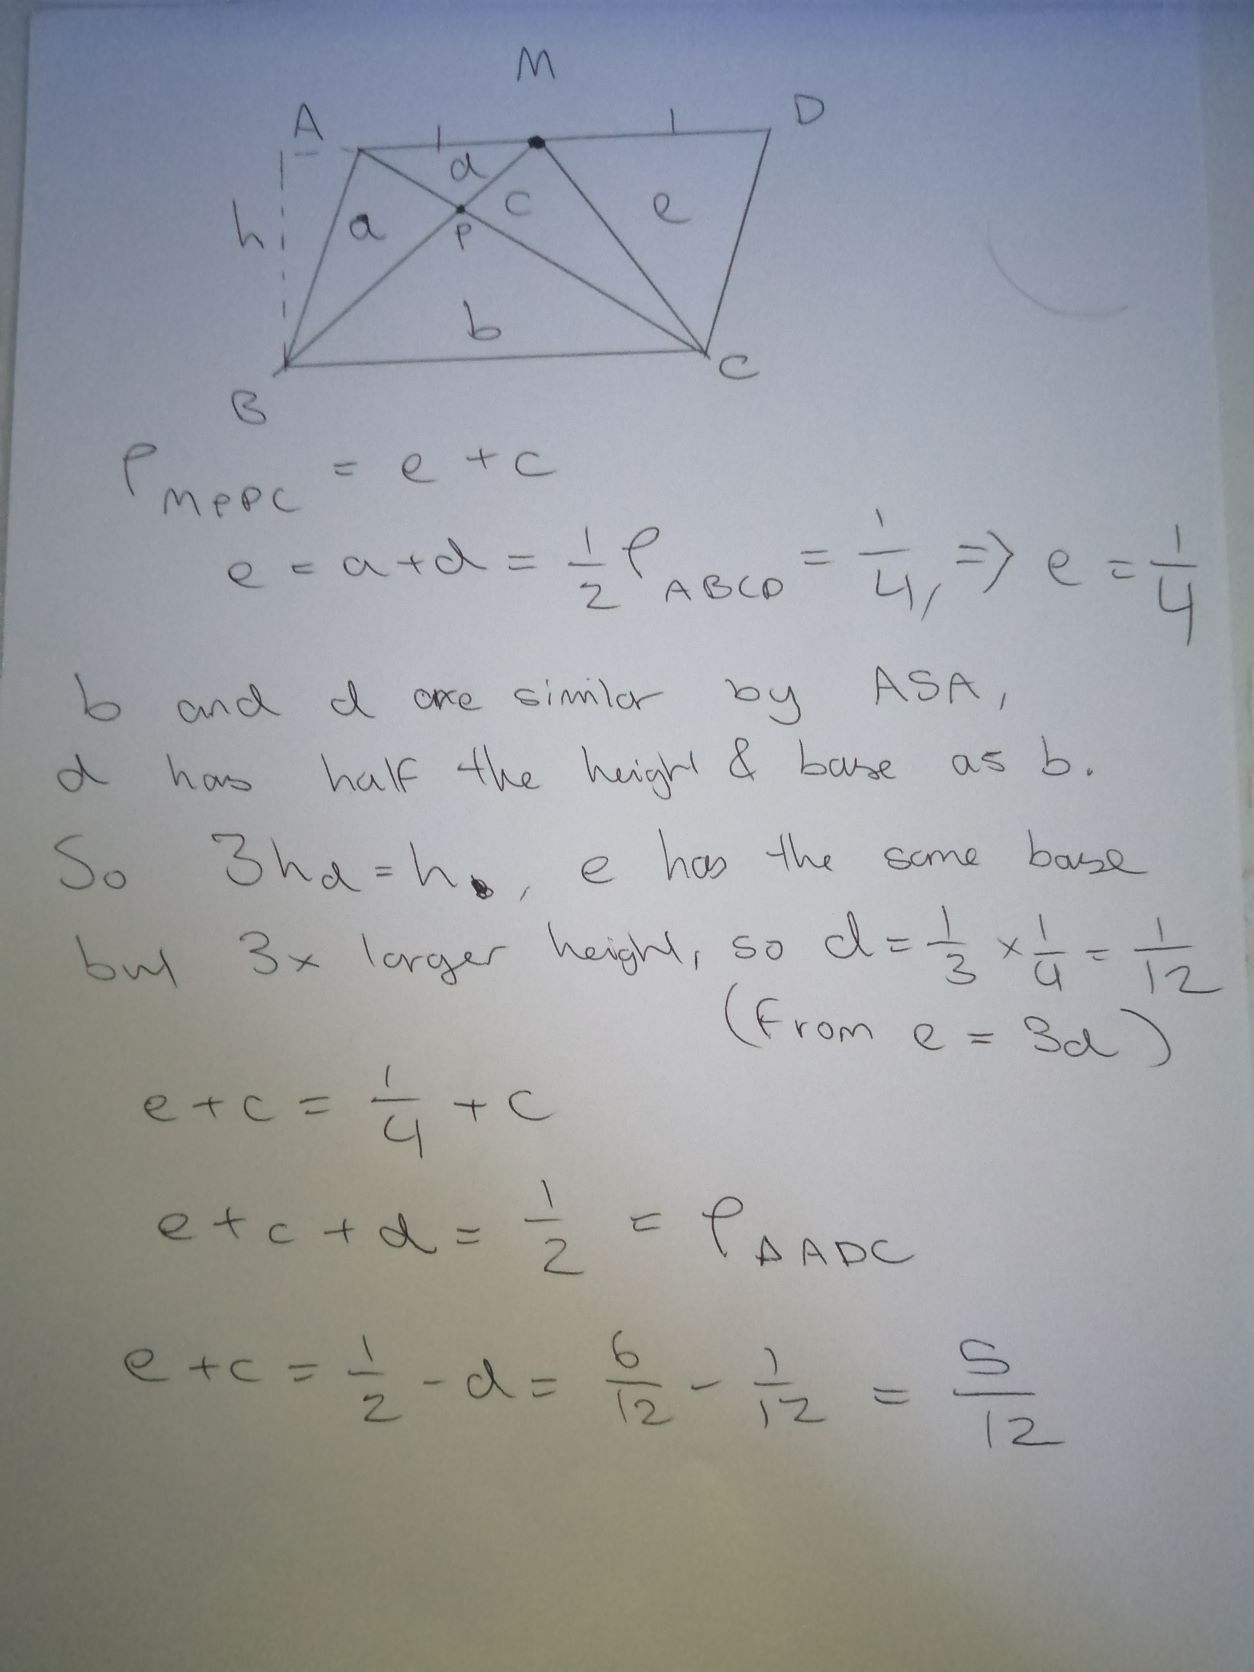 M
A
D
d
h
a
c
e
P
b
B
C
P MPDC = e + c
e = a + d = 1/2 P ABCD = 1/4, => e = 1/4
b and d are similar by ASA,
d has half the height & base as b.
So 3hd = h, e has the same base
but 3x larger height, so d = 1/3 × 1/4 = 1/12
(From e = 3d)
e + c = 1/4 + c
e + c + d = 1/2 = P ΔADC
e + c = 1/2 - d = 6/12 - 1/12 = 5/12